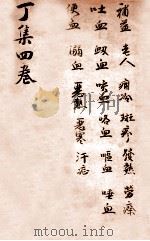 補益 老人 痼冷 斑疹 發熱 勞瘵
吐血 衄血 咳血 咯血 嘔血 唾血
便血 溺血 惡熱 惡寒 汗
丁集四卷
www.mtoou.info
mtoou.info